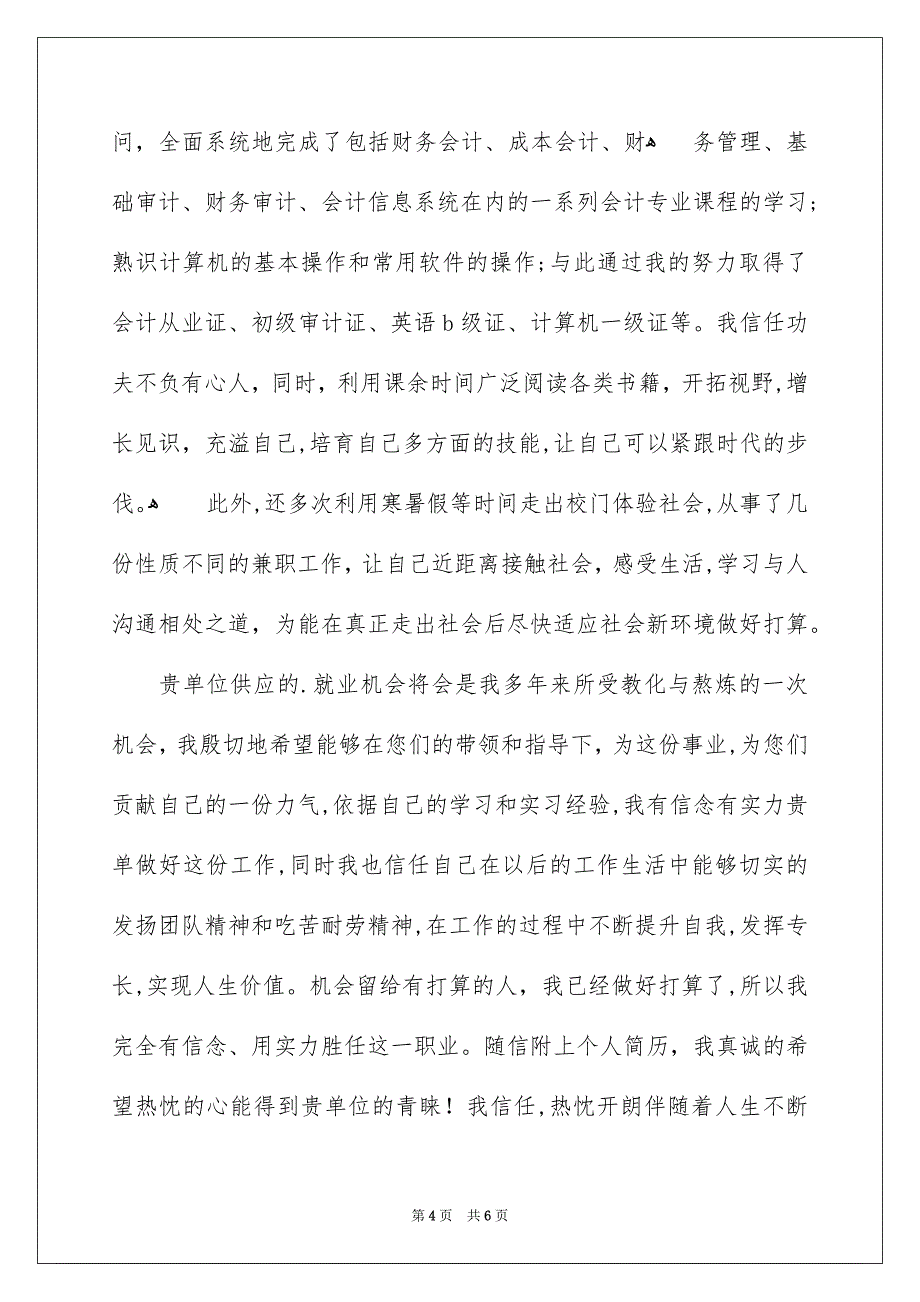 问，全面系统地完成了包括财务会计、成本会计、财ﻫ 务管理、基
础审计、财务审计、会计信息系统在内的一系列会计专业课程的学习;
熟识计算机的基本操作和常用软件的操作;与此通过我的努力取得了
会计从业证、初级审计证、英语b级证、计算机一级证等。我信任功
夫不负有心人，同时，利用课余时间广泛阅读各类书籍，开拓视野,增
长见识，充溢自己,培育自己多方面的技能,让自己可以紧跟时代的步
伐。ﻫ 此外,还多次利用寒暑假等时间走出校门体验社会,从事了几
份性质不同的兼职工作，让自己近距离接触社会，感受生活,学习与人
沟通相处之道，为能在真正走出社会后尽快适应社会新环境做好打算。
贵单位供应的.就业机会将会是我多年来所受教化与熬炼的一次
机会，我殷切地希望能够在您们的带领和指导下，为这份事业,为您们
贡献自己的一份力气,依据自己的学习和实习经验,我有信念有实力贵
单做好这份工作,同时我也信任自己在以后的工作生活中能够切实的
发扬团队精神和吃苦耐劳精神,在工作的过程中不断提升自我,发挥专
长,实现人生价值。机会留给有打算的人，我已经做好打算了,所以我
完全有信念、用实力胜任这一职业。随信附上个人简历，我真诚的希
望热忱的心能得到贵单位的青睐！我信任,热忱开朗伴随着人生不断
第 4 页 共 6 页